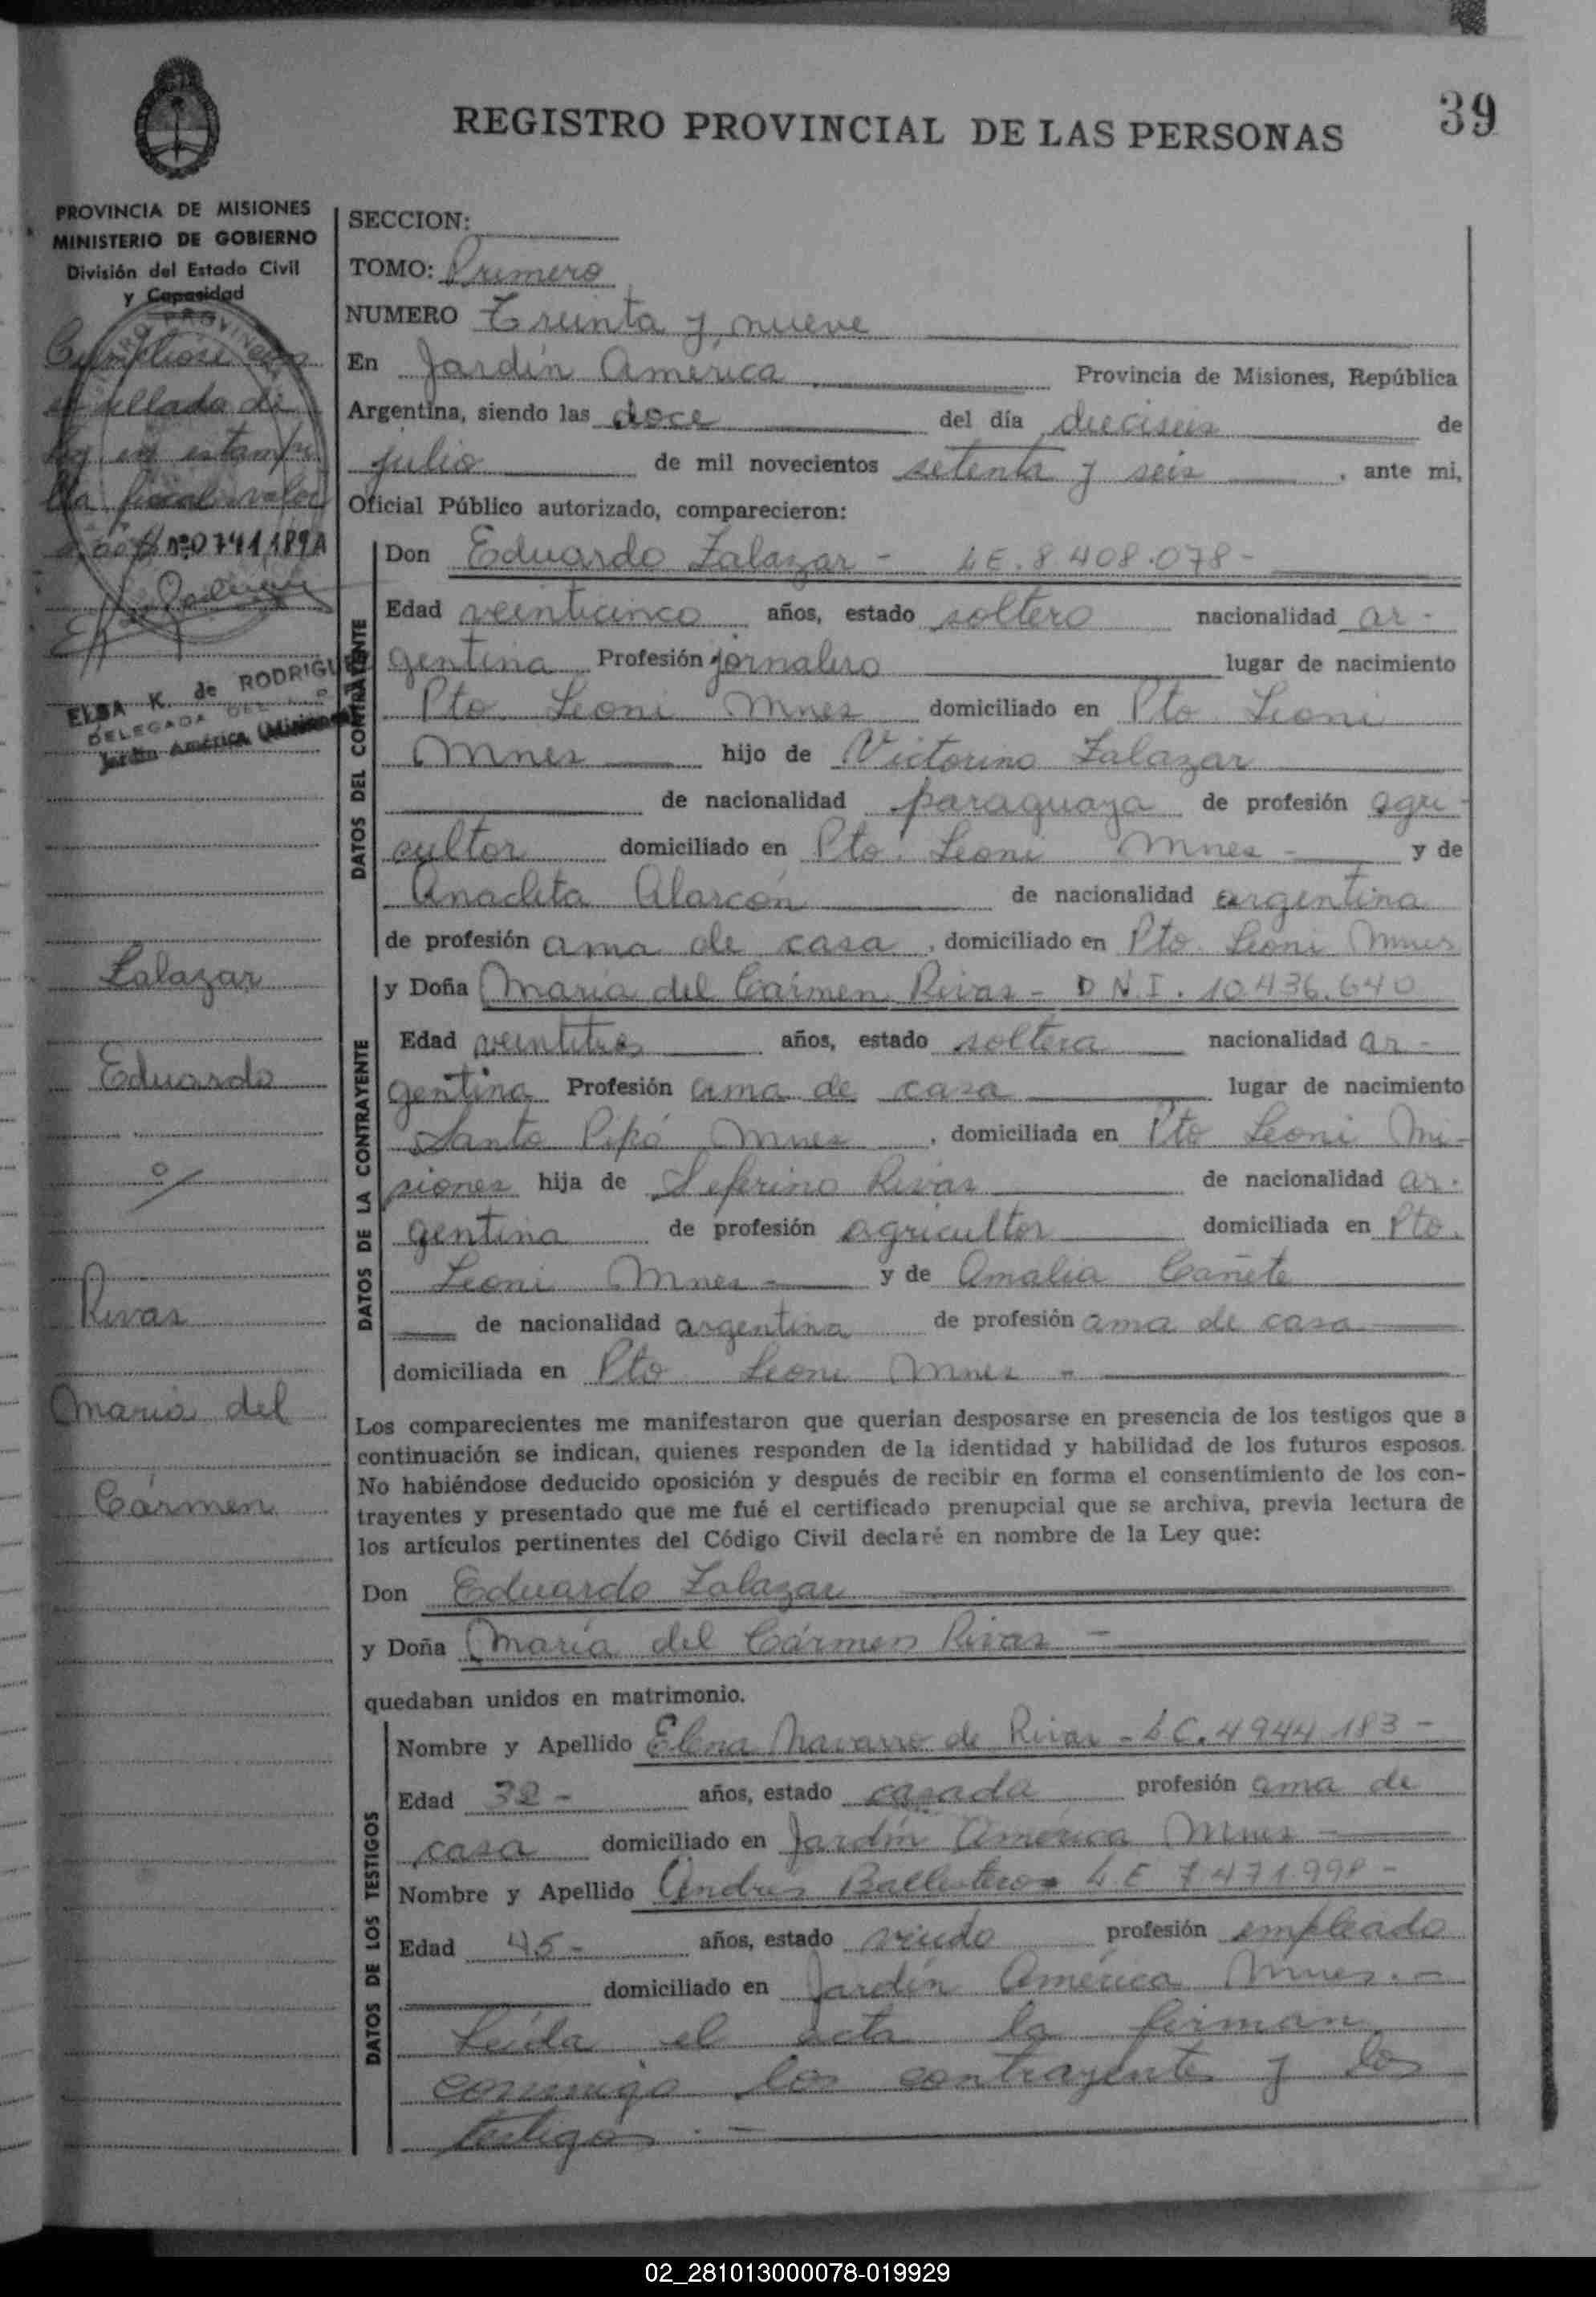 39
REGISTRO PROVINCIAL DE LAS PERSONAS
PROVINCIA DE MISIONES
MINISTERIO DE GOBIERNO
División del Estado Civil
y Capacidad
Cumpliose con
el sellado de
ley en estampi
lla fiscal valor
Nº 0741189A
ELBA K. de RODRIGUEZ
DELEGADA DEL
Jardín América (Misiones)
Zalazar
Eduardo
Rivas
Maria del
Cármen
SECCION:
TOMO: Primero
NUMERO Treinta y nueve
En Jardín América Provincia de Misiones, República
Argentina, siendo las doce del día dieciseis de
julio de mil novecientos setenta y seis , ante mi,
Oficial Público autorizado, comparecieron:
DATOS DEL CONTRAYENTE
Don Eduardo Zalazar - LE. 8.408.078-
Edad veinticinco años, estado soltero nacionalidad ar-
gentina Profesión jornalero lugar de nacimiento
Pto. Leoni Mnes domiciliado en Pto. Leoni
Mnes hijo de Victorino Zalazar
de nacionalidad paraguaya de profesión agri-
cultor domiciliado en Pto. Leoni Mnes - y de
Anacleta Alarcón de nacionalidad argentina
de profesión ama de casa , domiciliado en Pto. Leoni Mnes
DATOS DE LA CONTRAYENTE
y Doña María del Cármen Rivas - D.N.I. 10.436.640
Edad veintitres años, estado soltera nacionalidad ar-
gentina Profesión ama de casa lugar de nacimiento
Santo Pipó Mnes , domiciliada en Pto Leoni Mi-
siones hija de Seferino Rivas de nacionalidad ar-
gentina de profesión agricultor domiciliada en Pto.
Leoni Mnes - y de Amalia Cañete
de nacionalidad argentina de profesión ama de casa
domiciliada en Pto Leoni Mnes -
Los comparecientes me manifestaron que querían desposarse en presencia de los testigos que a
continuación se indican, quienes responden de la identidad y habilidad de los futuros esposos.
No habiéndose deducido oposición y después de recibir en forma el consentimiento de los con-
trayentes y presentado que me fué el certificado prenupcial que se archiva, previa lectura de
los artículos pertinentes del Código Civil declaré en nombre de la Ley que:
Don Eduardo Zalazar
y Doña María del Cármen Rivas -
quedaban unidos en matrimonio.
DATOS DE LOS TESTIGOS
Nombre y Apellido Elena Navarro de Rivas - L.C. 4944.183 -
Edad 32 - años, estado casada profesión ama de
casa domiciliado en Jardín América Mnes -
Nombre y Apellido Andres Ballesteros L.E 7.471.998 -
Edad 45 - años, estado viudo profesión empleado
domiciliado en Jardín América Mnes. -
Leída el acta la firman
conmigo los contrayentes y los
testigos. -
02_281013000078-019929